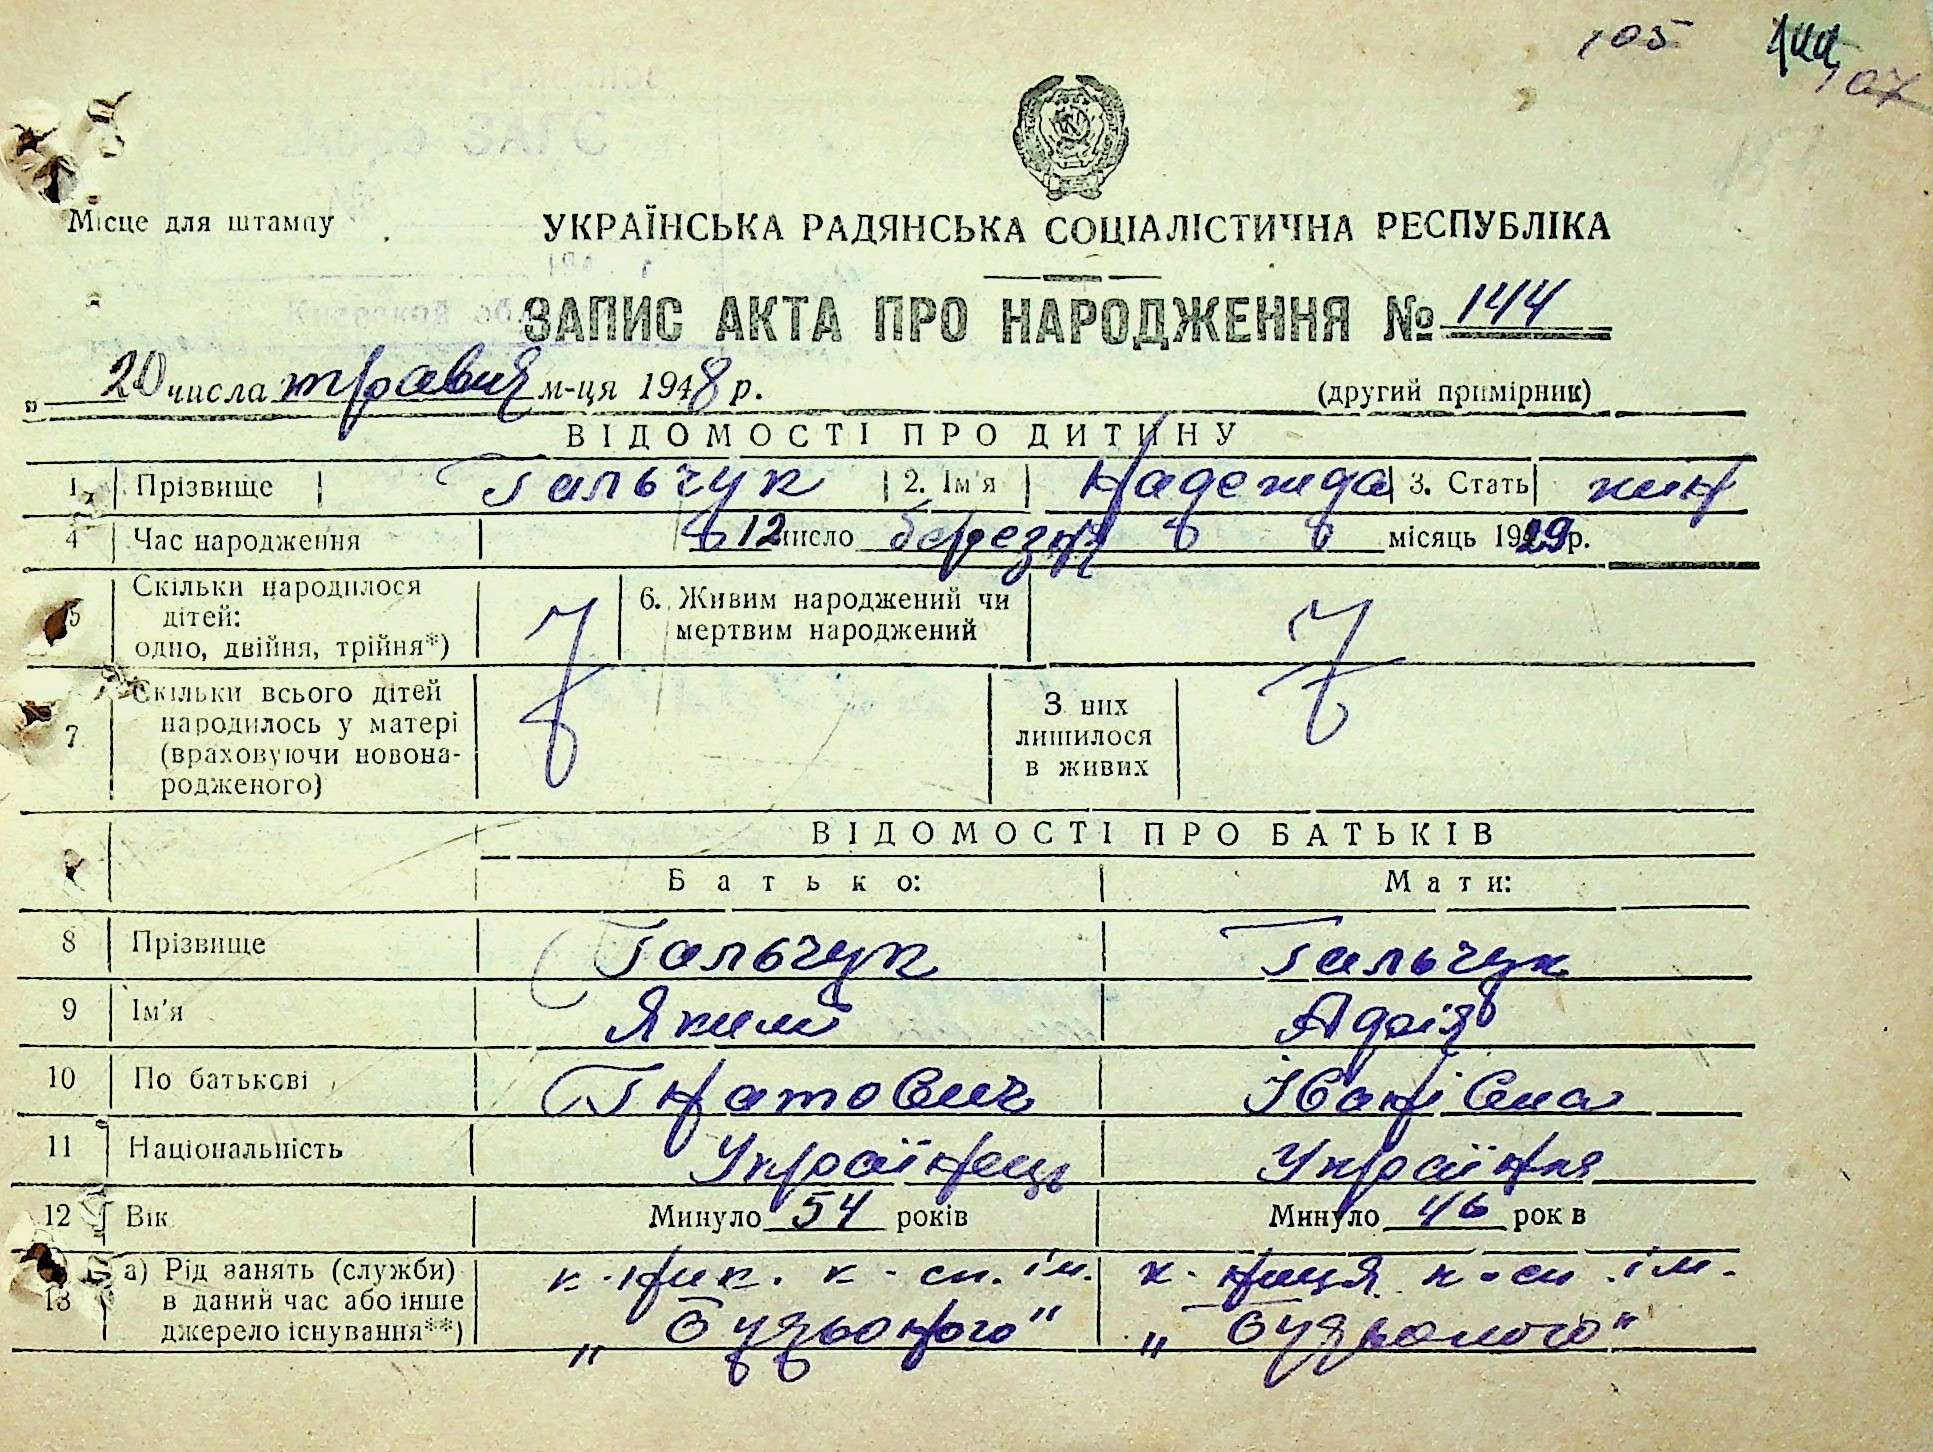 105
107
Місце для штампу
УКРАЇНСЬКА РАДЯНСЬКА СОЦІАЛІСТИЧНА РЕСПУБЛІКА
ЗАПИС АКТА ПРО НАРОДЖЕННЯ № 144
„ 20 числа травня м-ця 1948 р. (другий примірник)
ВІДОМОСТІ ПРО ДИТИНУ
1 Прізвище Гальчук 2. Ім'я Надежда 3. Стать жін
4 Час народження 12 число березня місяць 1929 р.
5 Скільки народилося дітей: одно, двійня, трійня*) 6. Живим народжений чи мертвим народжений
7 Скільки всього дітей народилось у матері (враховуючи новонародженого) З них лишилося в живих
ВІДОМОСТІ ПРО БАТЬКІВ
Батько: Мати:
8 Прізвище Гальчук Гальчук
9 Ім'я Яким
10 По батькові Гнатович Іванівна
11 Національність Українець Українка
12 Вік Минуло 54 років Минуло 46 рок в
13 а) Рід занять (служби) в даний час або інше джерело існування**) к-ник. к-сп. ім. „Будьоного" к-ниця к-сп. ім. „Будьоного"